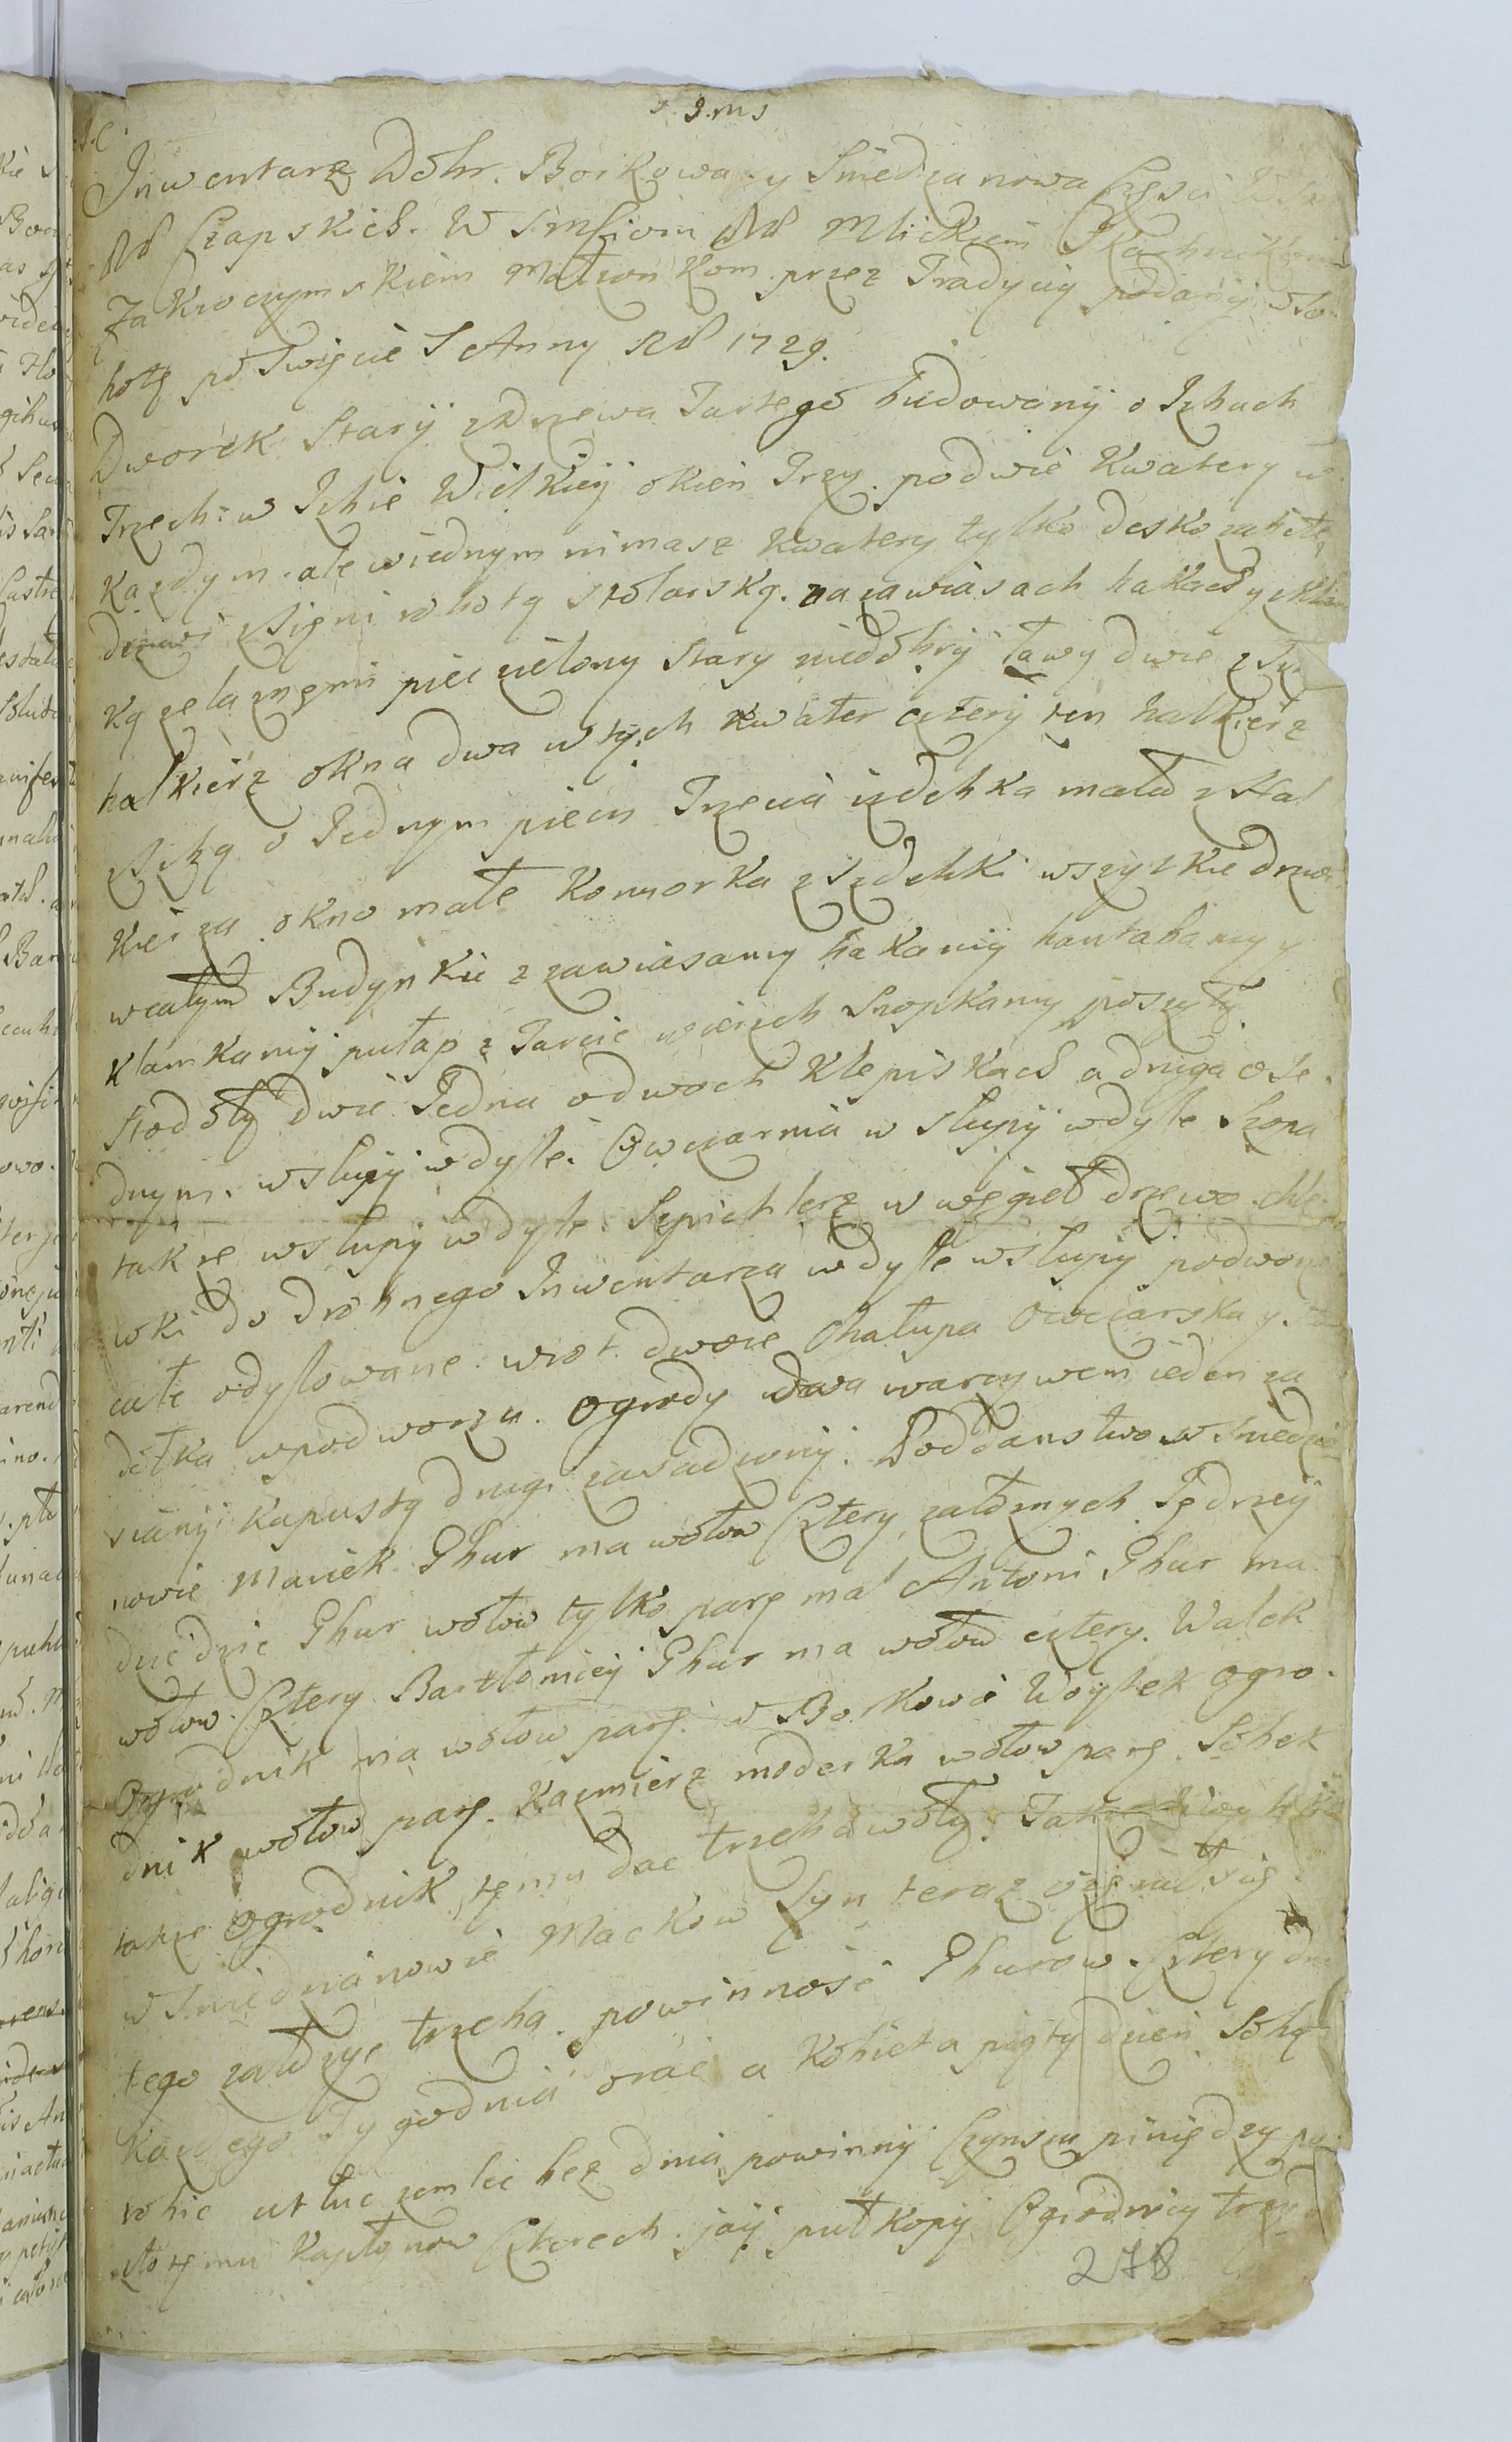 Inwentarz Dobr. Borkowa y Smiedzanowa Częsci
Czapskich. W Imsciom Mlickiem
Zakroczymskiem Małzonkom przez Tradycią podanÿ
botę po Swięcie S Anny Rd 1729.
Dworek StarÿzDrzewa Tartego budowanÿ o Izbach
Trzech: w Izbie Wielkieÿ okien Trzy. podwie Kwatery w
Kazdym. ale wiednym nimasz Kwatery tylko desko zabitę
drzwi robotą stolarską. na zawiasach hakach y
ką zelaznemi piec zielony stary niedobrÿ ławy dwie
halkierz okna dwa w tych Kwater czterÿ ten halkierz
zIzbą o Jednym piecu Trzecia izdebka mała zHal
kierza okno małe Komorka zIzdebki wszytkie drzwi
wcałym Budynkie z zawiasamy hakamÿ hantabamy y
klamkamÿ pułap z Tarcic wierzch Snopkamy poszyty
stodoły dwie Jedna odwoch Klepiskach a druga oJe.
dnym. wslupÿ wdyle. Owczarnia w slupÿ wdyle Szopa
takze wslupÿ wdyle. Szpichlerz w węgieł drzewo. chle.
wki do drobnego Inwentarza wdyle wslupÿ podworze
całe odylowane. wrot dwoie Chałupa Owczarska y
dołka wpodworzu. Ogrody dwa warzywem ieden za
sianÿ Kapustą drugi zasadzonÿ. Poddanstwo w Smiedzia
nowie Maciek Gbur ma wołow Cztery załoznych Jędrzeÿ
dziedzic Gbur wołow tylko parę mal Antoni Gbur ma
wołow. Cztery Bartłomieÿ Gbur ma wołow cztery. Walek
Ogrodnik ma wołow parę. w Borkowie Woytek Ogro.
dnik wołow parę. Kazmierz moderka wołow parę. Sobek
takze Ogrodnik temu dac trzeba woły. Jak
w Smiedzianowie Mackow Syn teraz ozenił się
tego załozyc trzeba. powinnosć Gburow. Cztery dni
Kazdego Tygodnia orać a Kobieta piąty dzień Sobą
robic utłuc zemlec bez dnia powinnÿ Czynszu pinięDzy po
złotemu Kapłonow Czterech. jaÿ puł kopÿ Ogrodnicy trzy
278